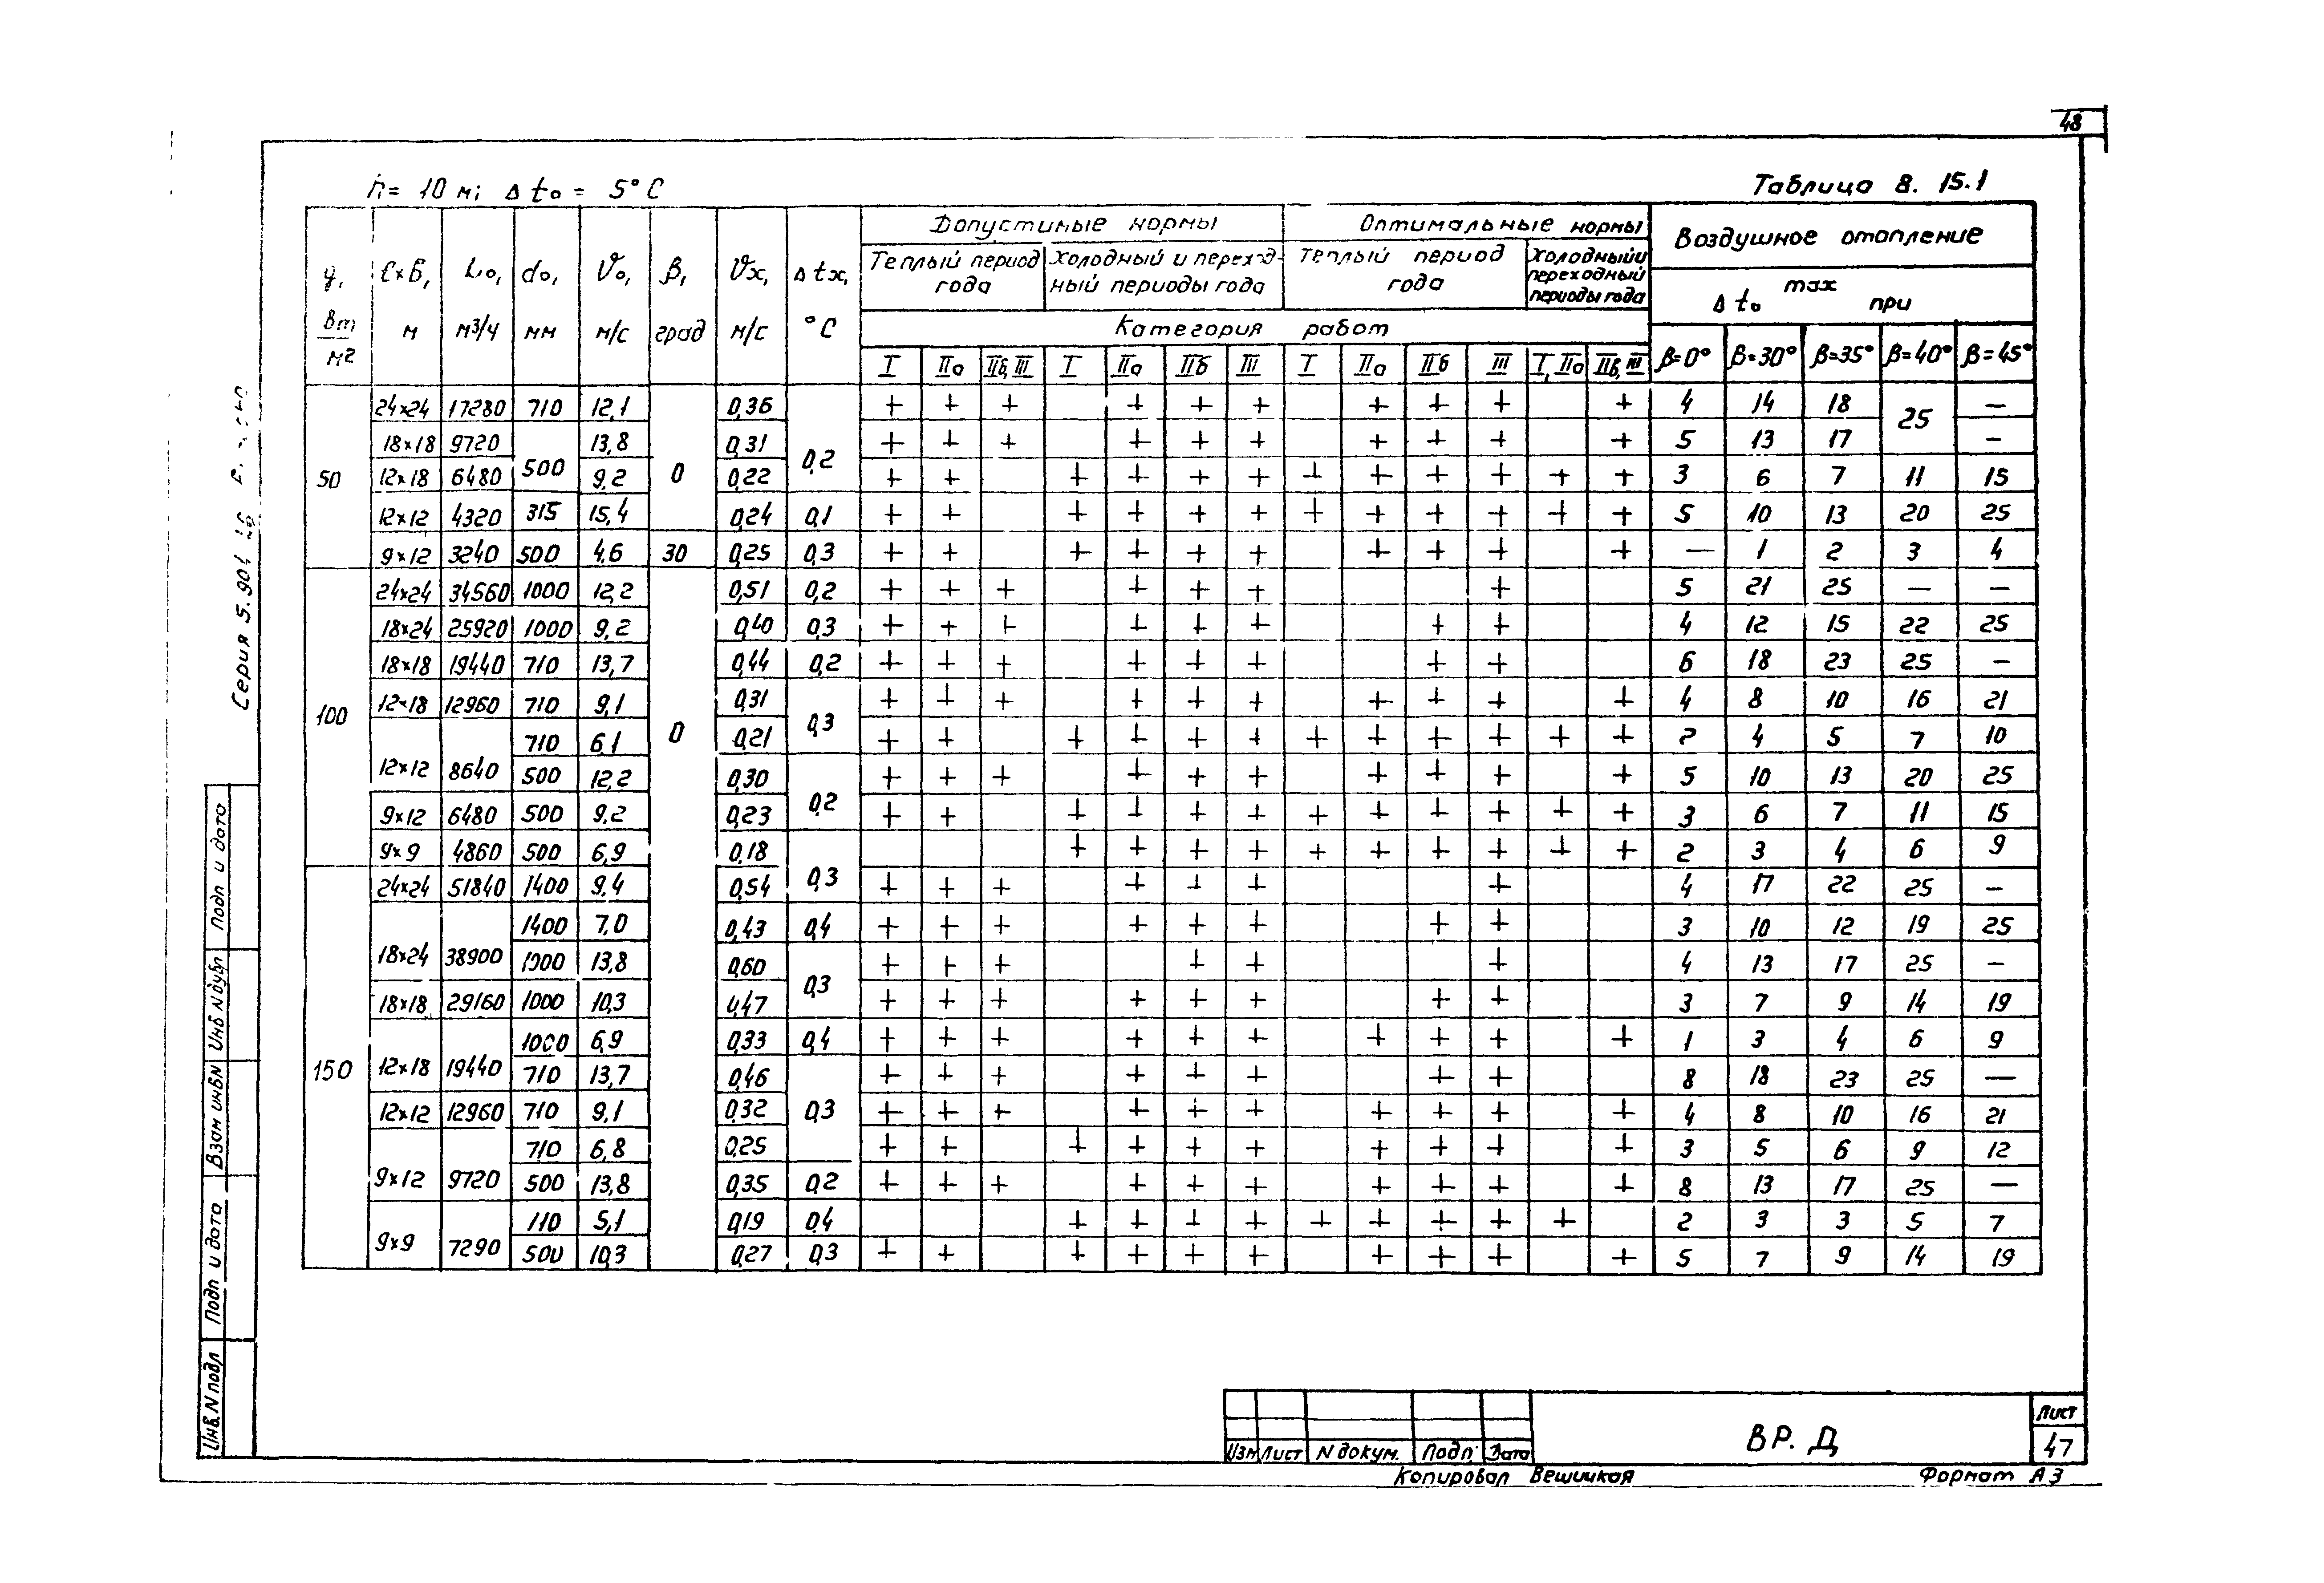 48
h = 10 м; Δ t₀ = 5° С
Таблица 8. 15.1
q, Вт/м² | ℓ×в, м | L₀, м³/ч | d₀, мм | υ₀, м/с | β, град | υх, м/с | Δ tх, °С | Допустимые нормы | Оптимальные нормы | Воздушное отопление
Теплый период года | Холодный и переход-ный периоды года | Теплый период года | Холодный и переходный периоды года | Δ t₀ max при
Категория работ
I | IIа | IIб, III | I | IIа | IIб | III | I | IIа | IIб | III | I, IIа | IIб, III | β=0° | β=30° | β=35° | β=40° | β=45°
50 | 24×24 | 17280 | 710 | 12,1 | 0 | 0,36 | 0,2 | + | + | + | | + | + | + | | + | + | + | | + | 4 | 14 | 18 | 25 | —
18×18 | 9720 | 500 | 13,8 | 0,31 | + | + | + | | + | + | + | | + | + | + | | + | 5 | 13 | 17 | —
12×18 | 6480 | 9,2 | 0,22 | + | + | | + | + | + | + | + | + | + | + | + | + | 3 | 6 | 7 | 11 | 15
12×12 | 4320 | 315 | 15,4 | 0,24 | 0,1 | + | + | | + | + | + | + | + | + | + | + | + | + | 5 | 10 | 13 | 20 | 25
9×12 | 3240 | 500 | 4,6 | 30 | 0,25 | 0,3 | + | + | | + | + | + | + | | + | + | + | | + | — | 1 | 2 | 3 | 4
100 | 24×24 | 34560 | 1000 | 12,2 | 0 | 0,51 | 0,2 | + | + | + | | + | + | + | | | | + | | | 5 | 21 | 25 | — | —
18×24 | 25920 | 1000 | 9,2 | 0,40 | 0,3 | + | + | + | | + | + | + | | | + | + | | | 4 | 12 | 15 | 22 | 25
18×18 | 19440 | 710 | 13,7 | 0,44 | 0,2 | + | + | + | | + | + | + | | | + | + | | | 6 | 18 | 23 | 25 | —
12×18 | 12960 | 710 | 9,1 | 0,31 | 0,3 | + | + | + | | + | + | + | | + | + | + | | + | 4 | 8 | 10 | 16 | 21
12×12 | 8640 | 710 | 6,1 | 0,21 | + | + | | + | + | + | + | + | + | + | + | + | + | 2 | 4 | 5 | 7 | 10
500 | 12,2 | 0,30 | 0,2 | + | + | + | | + | + | + | | + | + | + | | + | 5 | 10 | 13 | 20 | 25
9×12 | 6480 | 500 | 9,2 | 0,23 | + | + | | + | + | + | + | + | + | + | + | + | + | 3 | 6 | 7 | 11 | 15
9×9 | 4860 | 500 | 6,9 | 0,18 | 0,3 | | | | + | + | + | + | + | + | + | + | + | + | 2 | 3 | 4 | 6 | 9
150 | 24×24 | 51840 | 1400 | 9,4 | 0,54 | + | + | + | | + | + | + | | | | + | | | 4 | 17 | 22 | 25 | —
18×24 | 38900 | 1400 | 7,0 | 0,43 | 0,4 | + | + | + | | + | + | + | | | + | + | | | 3 | 10 | 12 | 19 | 25
1000 | 13,8 | 0,60 | 0,3 | + | + | + | | | + | + | | | | + | | | 4 | 13 | 17 | 25 | —
18×18 | 29160 | 1000 | 10,3 | 0,47 | + | + | + | | + | + | + | | | + | + | | | 3 | 7 | 9 | 14 | 19
12×18 | 19440 | 1000 | 6,9 | 0,33 | 0,4 | + | + | + | | + | + | + | | + | + | + | | + | 1 | 3 | 4 | 6 | 9
710 | 13,7 | 0,46 | 0,3 | + | + | + | | + | + | + | | | + | + | | | 8 | 18 | 23 | 25 | —
12×12 | 12960 | 710 | 9,1 | 0,32 | + | + | + | | + | + | + | | + | + | + | | + | 4 | 8 | 10 | 16 | 21
9×12 | 9720 | 710 | 6,8 | 0,25 | + | + | | + | + | + | + | | + | + | + | | + | 3 | 5 | 6 | 9 | 12
500 | 13,8 | 0,35 | 0,2 | + | + | + | | + | + | + | | + | + | + | | + | 8 | 13 | 17 | 25 | —
9×9 | 7290 | 110 | 5,1 | 0,19 | 0,4 | | | | + | + | + | + | + | + | + | + | + | | 2 | 3 | 3 | 5 | 7
500 | 10,3 | 0,27 | 0,3 | + | + | | + | + | + | + | | + | + | + | | + | 5 | 7 | 9 | 14 | 19
Серия 5.904
Подп и дата
Инв N дубл
Взам инв N
Подп и дата
Инв. N подл
Изм Лист N докум. Подп. Дата
ВР. Д
Лист
47
Копировал Вешицкая
Формат А3